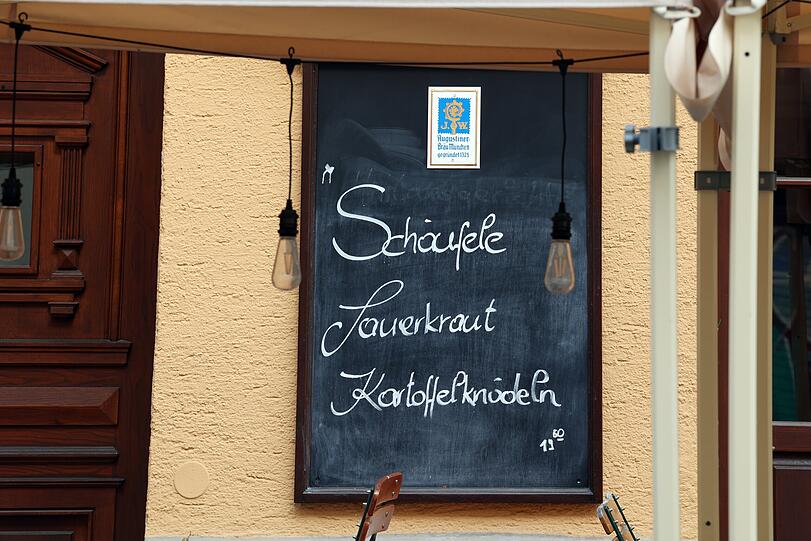 J.W.
Augustiner
Bräu München
gegründet 1328
Schäufele
Sauerkraut
Kartoffelknödeln
19 60